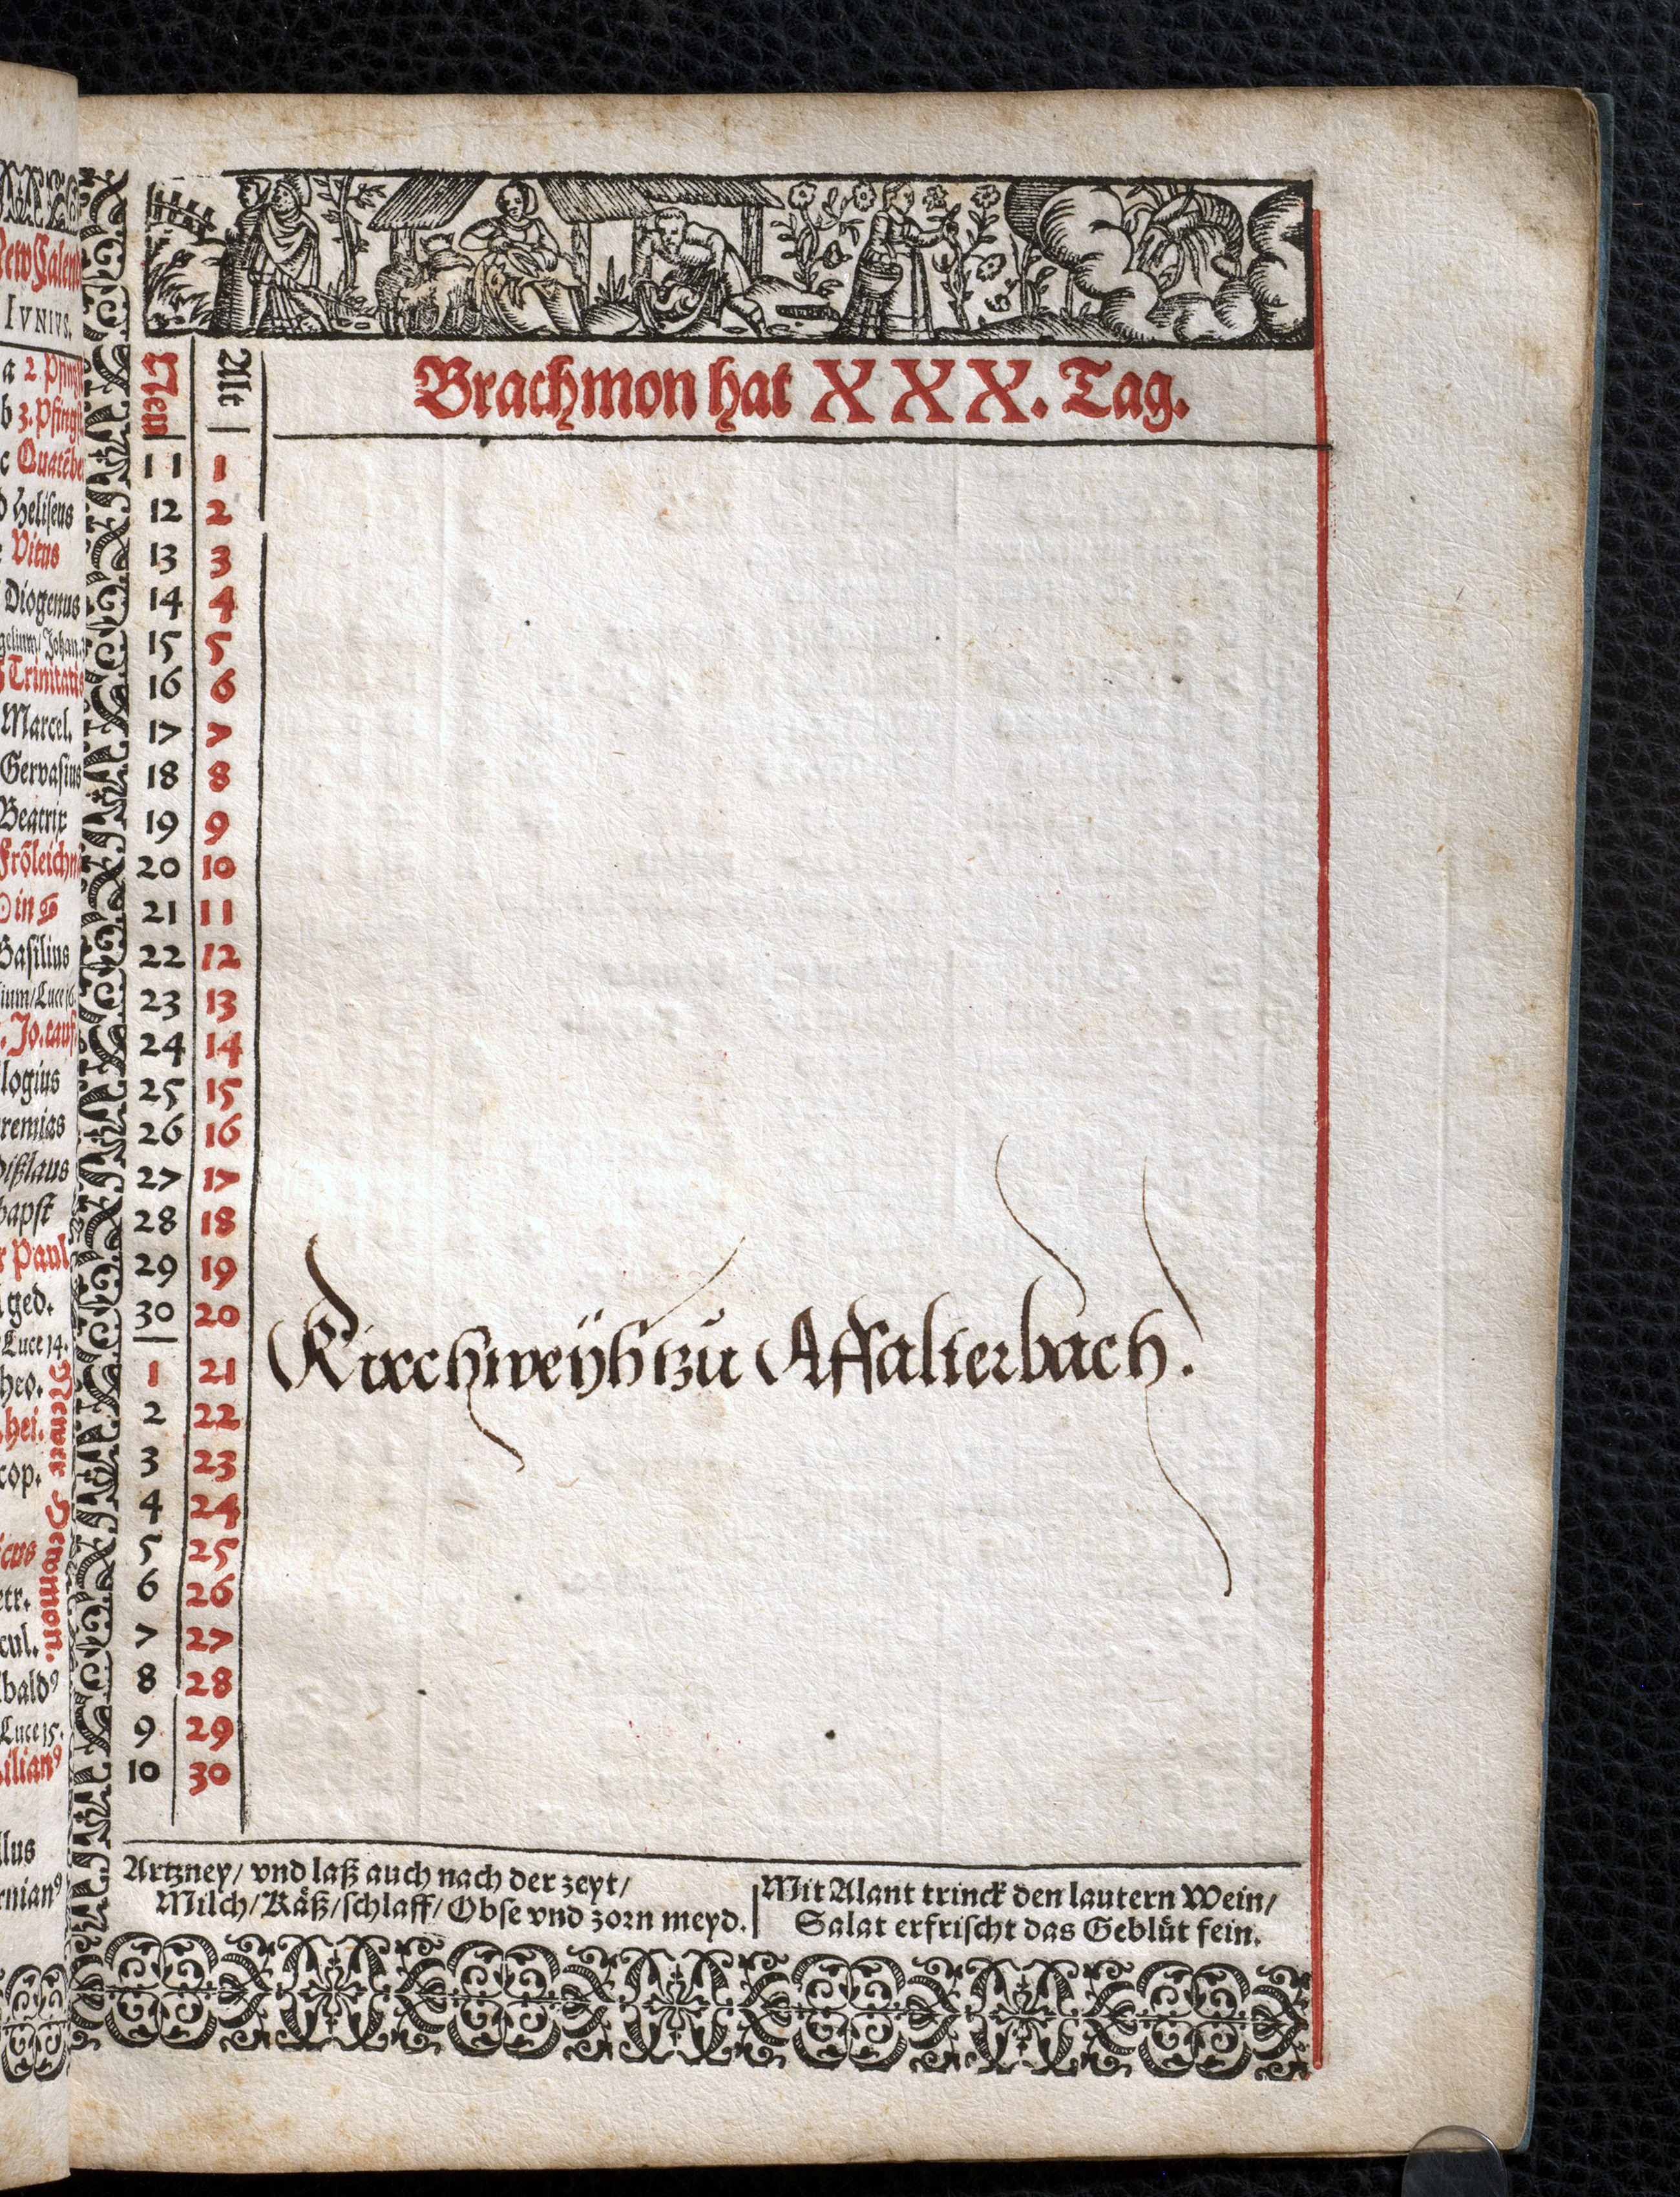 New Calend
IVNIVS.
a 2. Pfingst
b 3. Pfingst
c Quatēbe
d Heliseus
e Vitus
Diogenus
gelium/Johan.3
Trinitatis
Marcel.
Gervasius
Beatrix
Frōleichn
☉ in ♋
Basilius
lium/Luce 16.
Jo. tauf.
logius
remias
dißlaus
bapst
r Paul
ged.
Luce 14.
heo.
hei.
cop.
icus
etr.
cul.
bald⁹
Luce 15.
ilian⁹
llus
rnian⁹
Newer Hewmon.
New | Alt
Brachmon hat XXX. Tag.
11 1
12 2
13 3
14 4
15 5
16 6
17 7
18 8
19 9
20 10
21 11
22 12
23 13
24 14
25 15
26 16
27 17
28 18
29 19
30 20
1 21 Kirchweÿh tzu Affalterbach.
2 22
3 23
4 24
5 25
6 26
7 27
8 28
9 29
10 30
Artzney/ vnd laß auch nach der zeyt/
Milch/Käß/schlaff/Obse vnd zorn meyd.
Mit Alant trinck den lautern Wein/
Salat erfrischt das Geblüt fein.